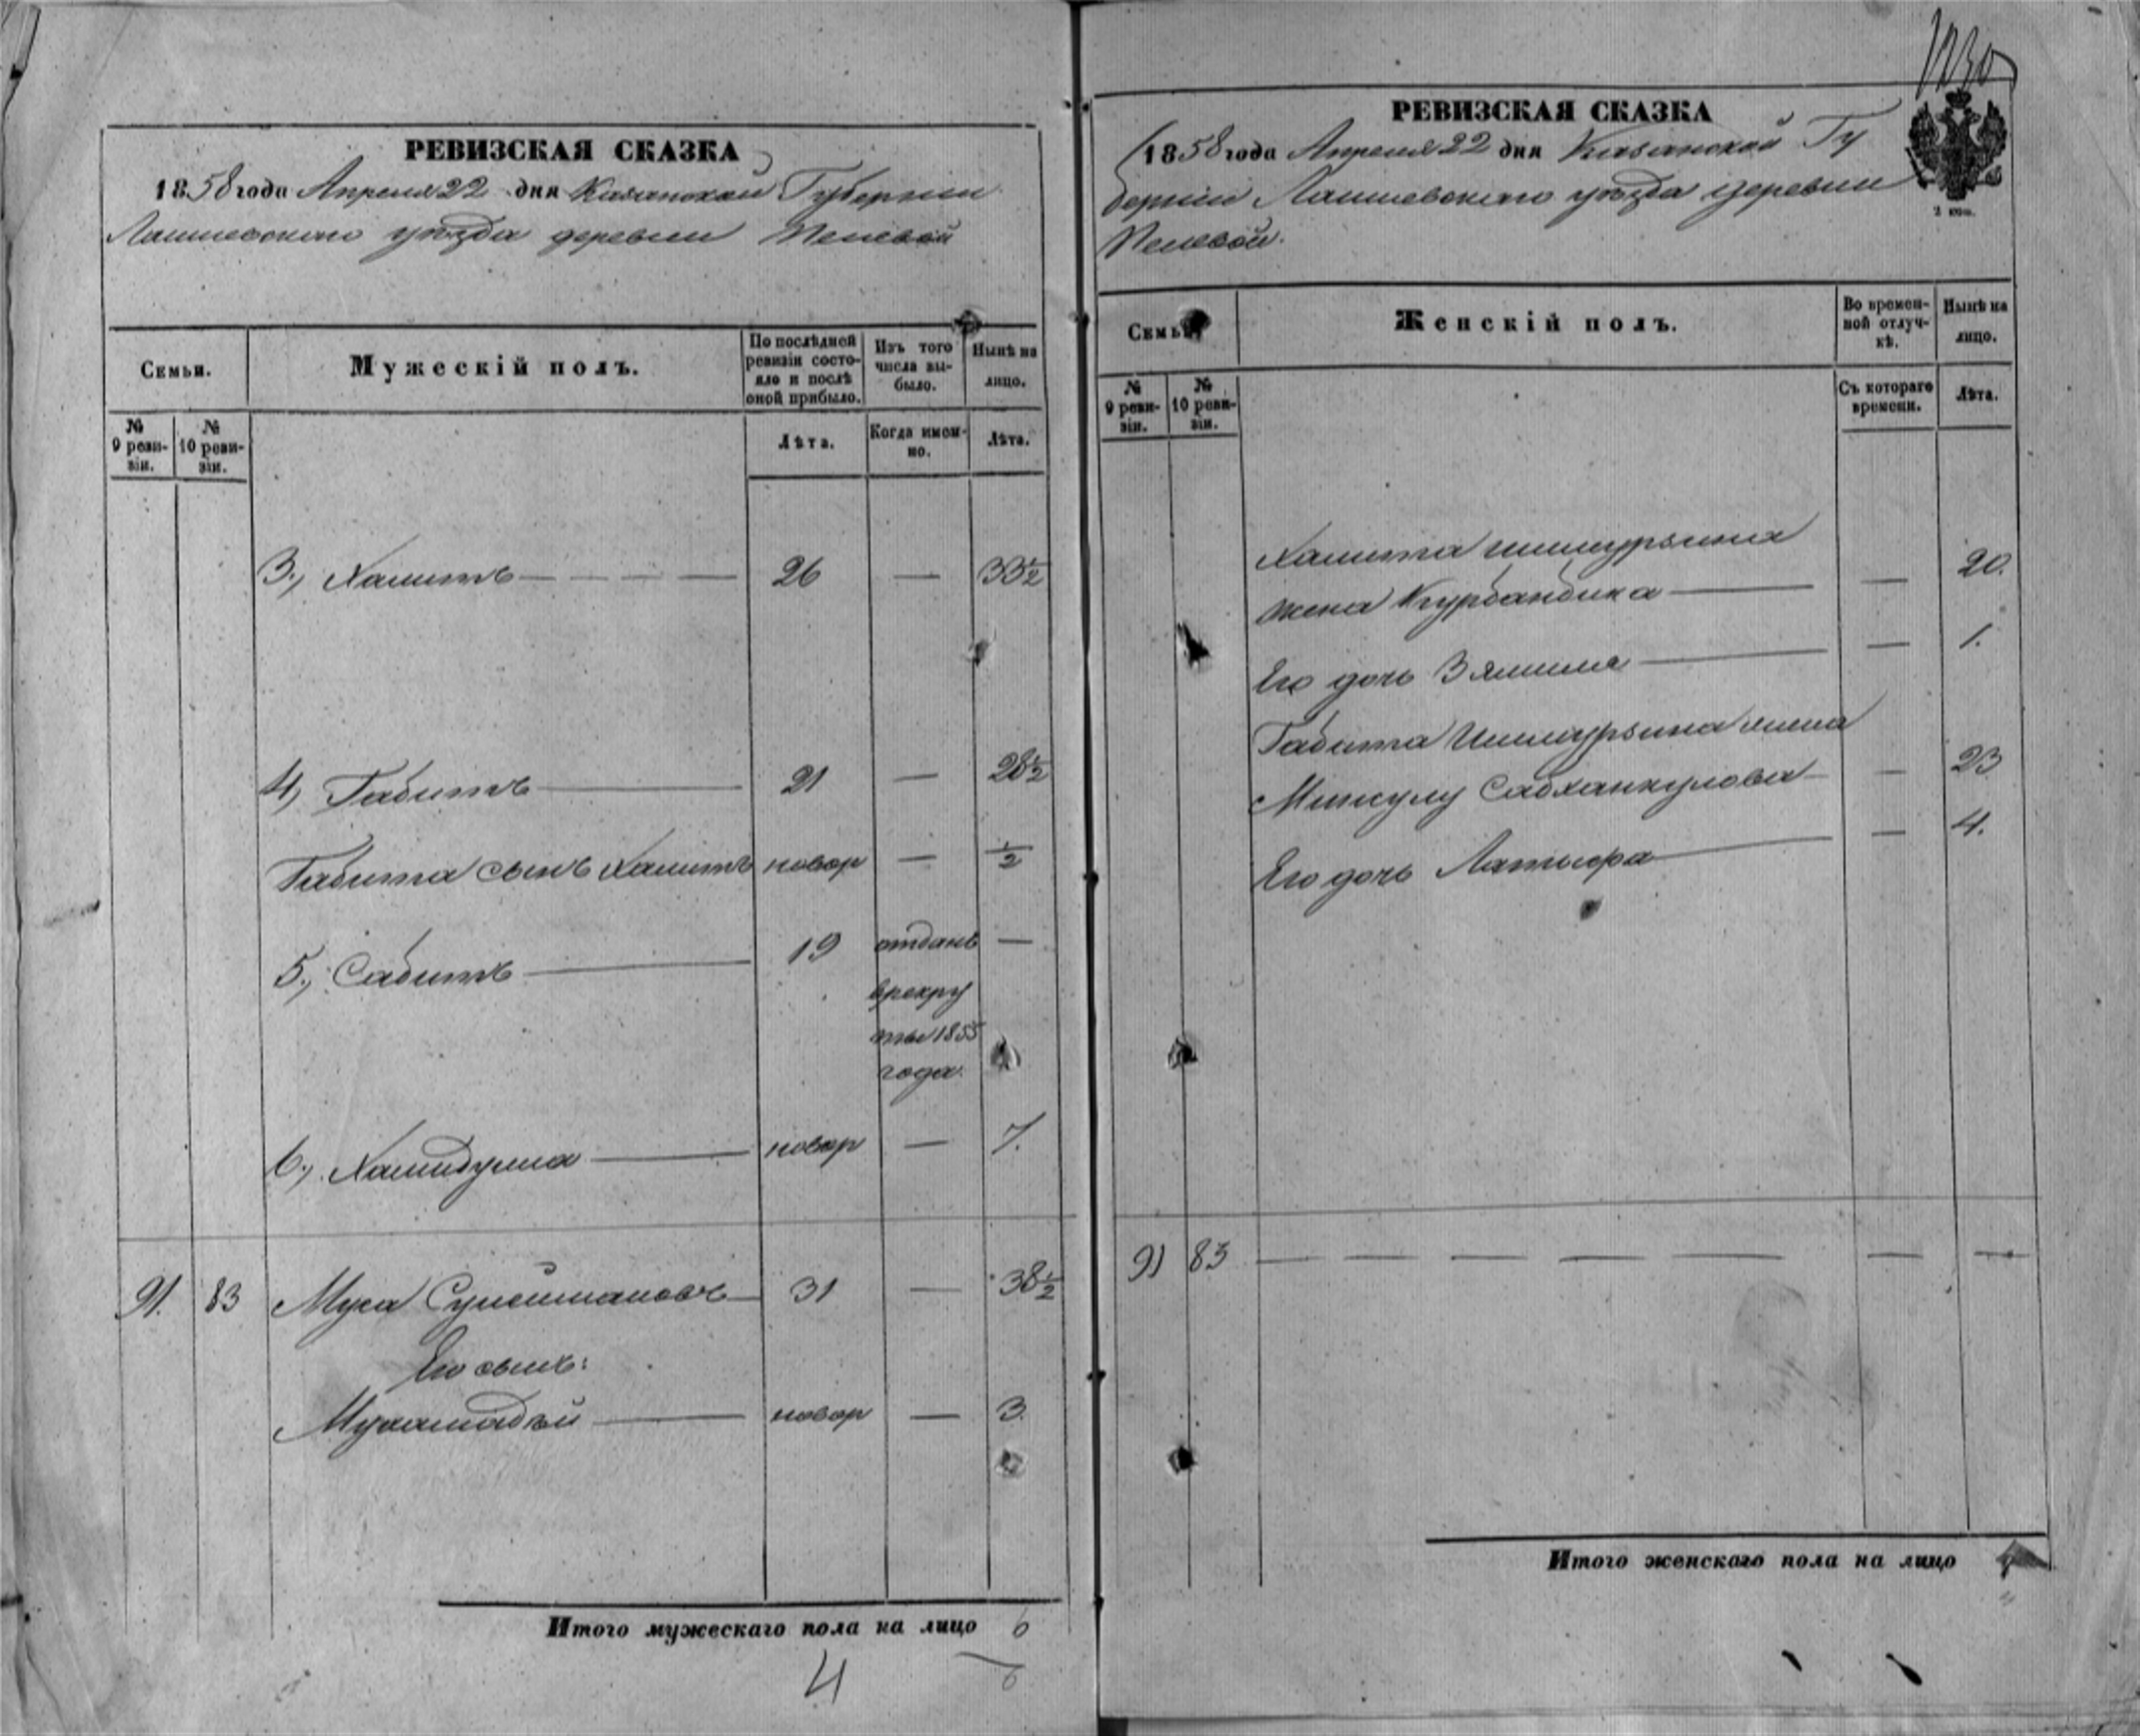 РЕВИЗСКАЯ СКАЗКА
1858 года Апреля 22 дня Казанской Губернии
Лаишевскаго уѣзда деревни
Семьи.
Мужескій полъ.
По послѣдней ревизіи состояло и послѣ оной прибыло.
Изъ того числа выбыло.
Нынѣ на лицо.
№ 9 ревизіи.
№ 10 ревизіи.
Лѣта.
Когда именно.
Лѣта.
3., Хамитъ — — — — 26 — 33½
4, Габитъ — 21 — 28½
Габита сынъ Хамитъ новор — ½
5., Сабитъ — 19 отданъ —
врекру
ты 1855
года.
6., Хамидулла — новор — 7.
91. 83 Муса Сулеймановъ — 31 — 38½
Его сынъ:
новор — 3.
Итого мужескаго пола на лицо 6
4 6
1230
РЕВИЗСКАЯ СКАЗКА
1858 года Апреля 22 дня Казанской Гу
берніи Лаишевскаго уѣзда деревни
2 коп.
Семьи
Женскій полъ.
Во временной отлучкѣ.
Нынѣ на лицо.
№ 9 ревизіи.
№ 10 ревизіи.
Съ котораго времени.
Лѣта.
Хамита
жена Курбанбика — — 20.
Его дочь — — 1.
Габита жена
— — 23
Его дочь — — 4.
91 83 — — — — — — —
Итого женскаго пола на лицо 4